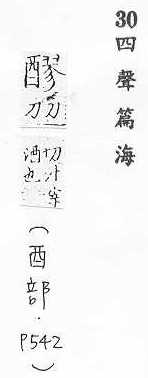 30四聲篇海
醪
力
刀
切汁滓
酒也
（酉部．P542）